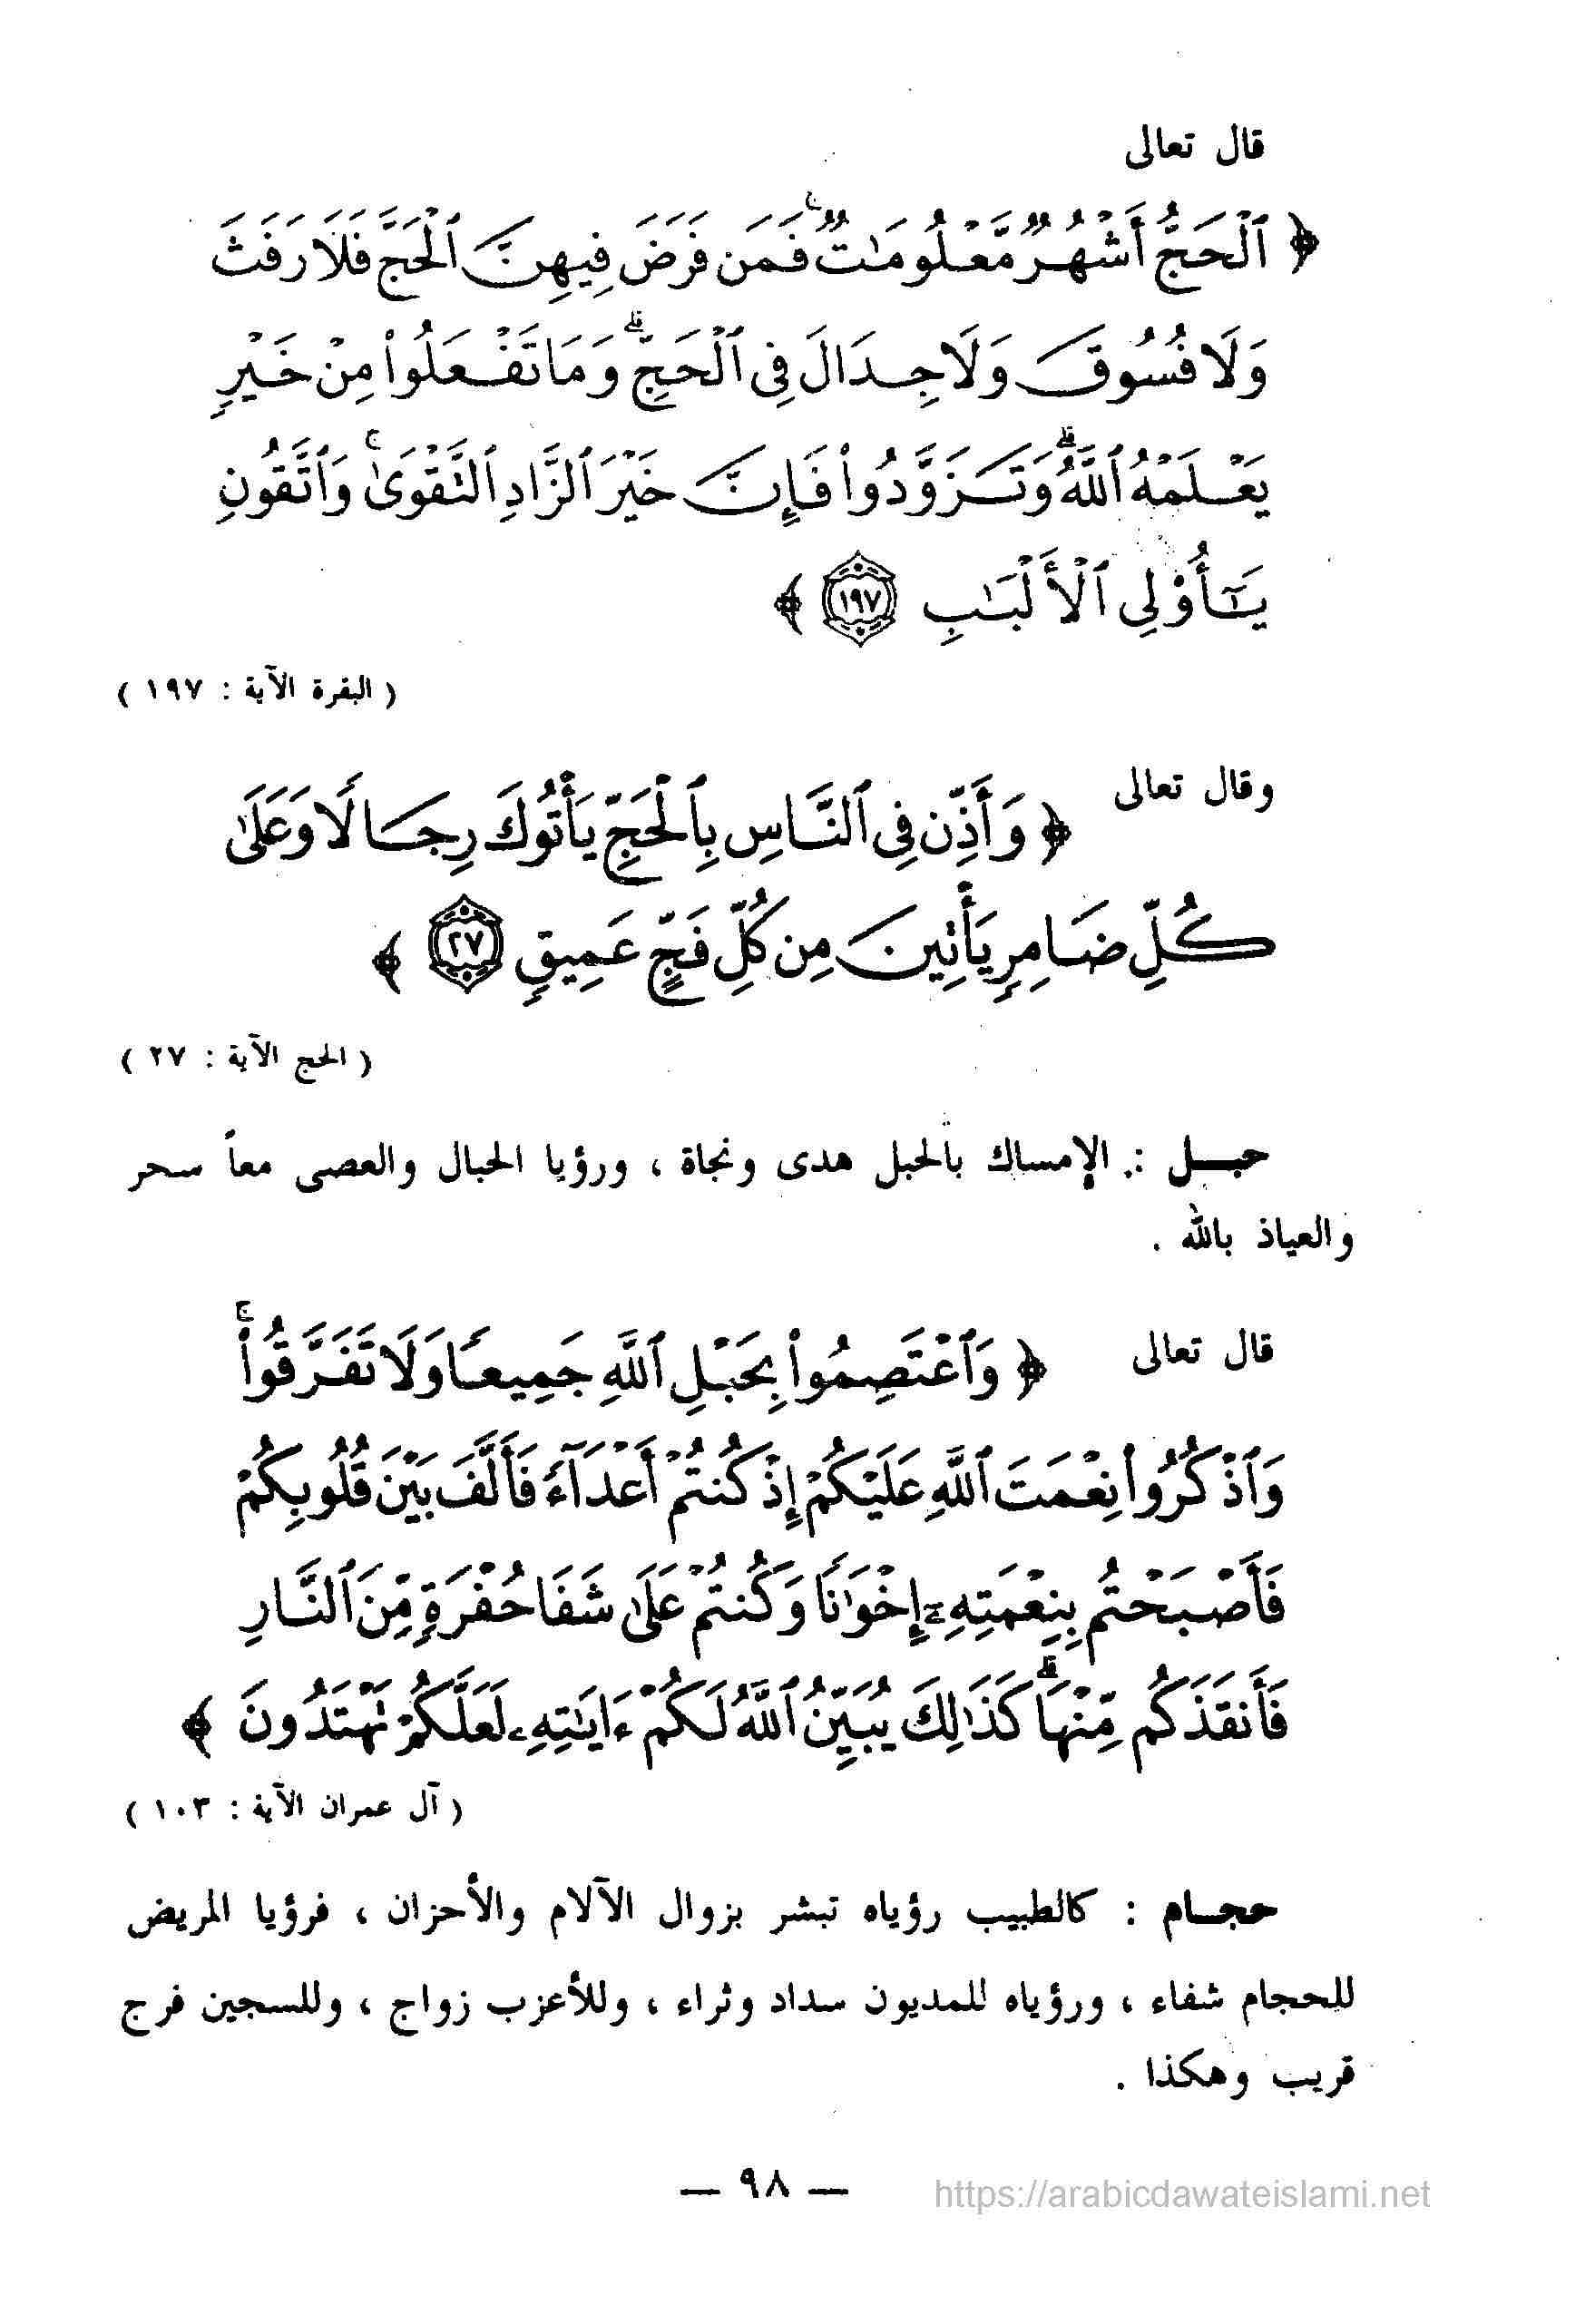 قال تعالى
﴿ ٱلْحَجُّ أَشْهُرٌ مَّعْلُومَٰتٌ ۚ فَمَن فَرَضَ فِيهِنَّ ٱلْحَجَّ فَلَا رَفَثَ
وَلَا فُسُوقَ وَلَا جِدَالَ فِى ٱلْحَجِّ ۗ وَمَا تَفْعَلُوا۟ مِنْ خَيْرٍ
يَعْلَمْهُ ٱللَّهُ ۗ وَتَزَوَّدُوا۟ فَإِنَّ خَيْرَ ٱلزَّادِ ٱلتَّقْوَىٰ ۚ وَٱتَّقُونِ
يَٰٓأُو۟لِى ٱلْأَلْبَٰبِ ١٩٧ ﴾
( البقرة الآية : ١٩٧ )
وقال تعالى ﴿ وَأَذِّن فِى ٱلنَّاسِ بِٱلْحَجِّ يَأْتُوكَ رِجَالًا وَعَلَىٰ
كُلِّ ضَامِرٍ يَأْتِينَ مِن كُلِّ فَجٍّ عَمِيقٍ ٢٧ ﴾
( الحج الآية : ٢٧ )
حبـل : الإمساك بالحبل هدى ونجاة ، ورؤيا الحبال والعصى معاً سحر
والعياذ بالله .
قال تعالى ﴿ وَٱعْتَصِمُوا۟ بِحَبْلِ ٱللَّهِ جَمِيعًا وَلَا تَفَرَّقُوا۟ ۚ
وَٱذْكُرُوا۟ نِعْمَتَ ٱللَّهِ عَلَيْكُمْ إِذْ كُنتُمْ أَعْدَآءً فَأَلَّفَ بَيْنَ قُلُوبِكُمْ
فَأَصْبَحْتُم بِنِعْمَتِهِۦٓ إِخْوَٰنًا وَكُنتُمْ عَلَىٰ شَفَا حُفْرَةٍ مِّنَ ٱلنَّارِ
فَأَنقَذَكُم مِّنْهَا ۗ كَذَٰلِكَ يُبَيِّنُ ٱللَّهُ لَكُمْ ءَايَٰتِهِۦ لَعَلَّكُمْ تَهْتَدُونَ ﴾
( آل عمران الآية : ١٠٣ )
حجـام : كالطبيب رؤياه تبشر بزوال الآلام والأحزان ، فرؤيا المريض
للحجام شفاء ، ورؤياه للمديون سداد وثراء ، وللأعزب زواج ، وللسجين فرج
قريب وهكذا .
— ٩٨ —
https://arabicdawateislami.net